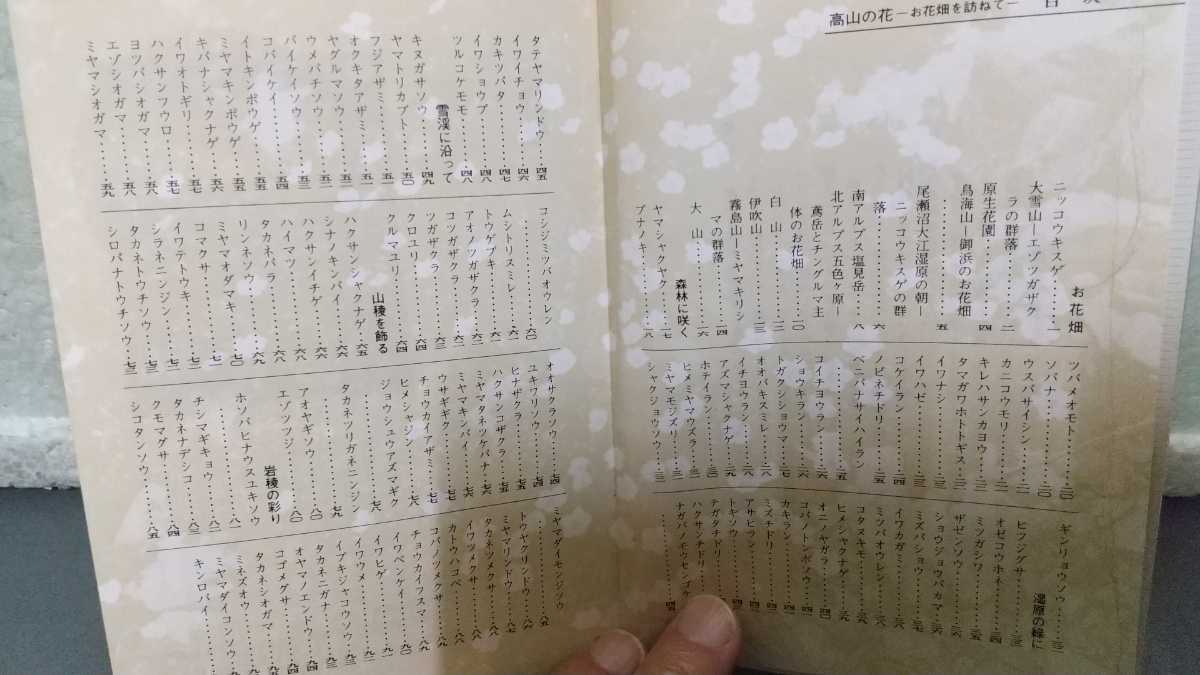 高山の花―お花畑を訪ねて―
お花畑
ニッコウキスゲ‥‥‥‥一
大雪山―エゾツガザク
ラの群落‥‥‥‥二
原生花園‥‥‥‥四
鳥海山―御浜のお花畑
‥‥‥‥五
尾瀬沼大江湿原の朝―
ニッコウキスゲの群
落‥‥‥‥六
南アルプス塩見岳‥‥八
北アルプス五色ヶ原―
鳶岳とチングルマ主
体のお花畑‥‥一〇
白山‥‥‥‥一二
伊吹山‥‥‥‥一三
霧島山―ミヤマキリシ
マの群落‥‥‥‥一四
大山‥‥‥‥一六
森林に咲く
ヤマシャクヤク‥‥一七
ブナノキ‥‥‥‥一八
ツバメオモト‥‥‥‥二〇
ソバナ‥‥‥‥二〇
ウスバサイシン‥‥‥‥二一
カニコウモリ‥‥‥‥二二
キレハサンカヨウ‥‥‥‥二二
タマガワホトトギス‥‥二三
イワナシ‥‥‥‥二三
イワハゼ‥‥‥‥二四
コケイラン‥‥‥‥二四
ノビネチドリ‥‥‥‥二五
ベニバナサイハイラン
‥‥‥‥二五
コイチヨウラン‥‥‥‥二六
ショウキラン‥‥‥‥二六
トガクシショウマ‥‥‥‥二七
オオバキスミレ‥‥‥‥二八
イチヨウラン‥‥‥‥二八
アズマシャクナゲ‥‥‥‥二九
ホテイラン‥‥‥‥三〇
ヒメミヤマウズラ‥‥‥‥三一
ミヤマモジズリ‥‥‥‥三一
シャクジョウソウ‥‥‥‥三二
ギンリョウソウ‥‥‥‥三二
湿原の緑に
ヒツジグサ‥‥‥‥三三
オゼコウホネ‥‥‥‥三四
ミツガシワ‥‥‥‥三五
ザゼンソウ‥‥‥‥三六
ショウジョウバカマ‥‥三六
ミズバショウ‥‥‥‥三七
イワカガミ‥‥‥‥三八
ミツバオウレン‥‥‥‥三八
コタヌキモ‥‥‥‥三九
ヒメシャクナゲ‥‥‥‥三九
オニノヤガラ‥‥‥‥四〇
コバノトンボソウ‥‥‥‥四一
カキラン‥‥‥‥四一
ミズチドリ‥‥‥‥四二
アサヒラン‥‥‥‥四二
トキソウ‥‥‥‥
テガタチドリ‥‥‥‥
ハクサンチドリ‥‥‥‥
ナガバノモウセンゴケ
‥‥‥‥四五
タテヤマリンドウ‥‥四五
イワイチョウ‥‥‥‥四六
カキツバタ‥‥‥‥四七
イワショウブ‥‥‥‥四八
ツルコケモモ‥‥‥‥四八
雪渓に沿って
キヌガサソウ‥‥‥‥四九
ヤマトリカブト‥‥‥‥五〇
フジアザミ‥‥‥‥五一
オクキタアザミ‥‥‥‥五一
ヤグルマソウ‥‥‥‥五二
ウメバチソウ‥‥‥‥五二
バイケイソウ‥‥‥‥五三
コバイケイ‥‥‥‥五四
イトキンポウゲ‥‥‥‥五五
ミヤマキンポウゲ‥‥‥‥五五
キバナシャクナゲ‥‥‥‥五六
イワオトギリ‥‥‥‥五七
ハクサンフウロ‥‥‥‥五七
ヨツバシオガマ‥‥‥‥五八
エゾシオガマ‥‥‥‥五八
ミヤマシオガマ‥‥‥‥五九
コシジミツバオウレン
‥‥‥‥六〇
ムシトリスミレ‥‥‥‥六一
トウゲブキ‥‥‥‥六一
アオノツガザクラ‥‥‥‥六二
コツガザクラ‥‥‥‥六二
ツガザクラ‥‥‥‥六三
クロユリ‥‥‥‥六四
クルマユリ‥‥‥‥六四
山稜を飾る
ハクサンシャクナゲ‥‥六五
シナノキンバイ‥‥‥‥六六
ハクサンイチゲ‥‥‥‥六七
ハイマツ‥‥‥‥六八
タカネバラ‥‥‥‥六八
リンネソウ‥‥‥‥六九
ミヤマオダマキ‥‥‥‥七〇
コマクサ‥‥‥‥七一
イワテトウキ‥‥‥‥七一
シラネニンジン‥‥‥‥七二
タカネトウチソウ‥‥‥‥七二
シロバナトウチソウ‥‥七三
オオサクラソウ‥‥‥‥七四
ユキワリソウ‥‥‥‥七四
ヒナザクラ‥‥‥‥七五
ハクサンコザクラ‥‥‥‥七五
ミヤマタネツケバナ‥‥七六
ミヤマキンバイ‥‥‥‥七六
ウサギギク‥‥‥‥七七
チョウカイアザミ‥‥‥‥七七
ヒメシャジン‥‥‥‥七八
ジョウシュウアズマギク
‥‥‥‥七八
タカネツリガネニンジン
‥‥‥‥七九
アオヤギソウ‥‥‥‥八〇
エゾツツジ‥‥‥‥八〇
岩稜の彩り
ホソバヒナウスユキソウ
‥‥‥‥八一
チシマギキョウ‥‥‥‥八二
タカネナデシコ‥‥‥‥八三
クモマグサ‥‥‥‥八四
シコタンソウ‥‥‥‥八五
ミヤマダイモンジソウ
‥‥‥‥八五
トウヤクリンドウ‥‥‥‥八六
ミヤマリンドウ‥‥‥‥八七
タカネツメクサ‥‥‥‥八八
イワツメクサ‥‥‥‥八八
カトウハコベ‥‥‥‥八八
コバノツメクサ‥‥‥‥八九
チョウカイフスマ‥‥‥‥八九
イワベンケイ‥‥‥‥九〇
イワヒゲ‥‥‥‥九一
イワウメ‥‥‥‥九二
イブキジャコウソウ‥‥九二
タカネニガナ‥‥‥‥九三
オヤマノエンドウ‥‥‥‥九四
コゴメグサ‥‥‥‥九四
タカネシオガマ‥‥‥‥九五
ミネズオウ‥‥‥‥
ミヤマダイコンソウ‥‥
キンロバイ‥‥‥‥